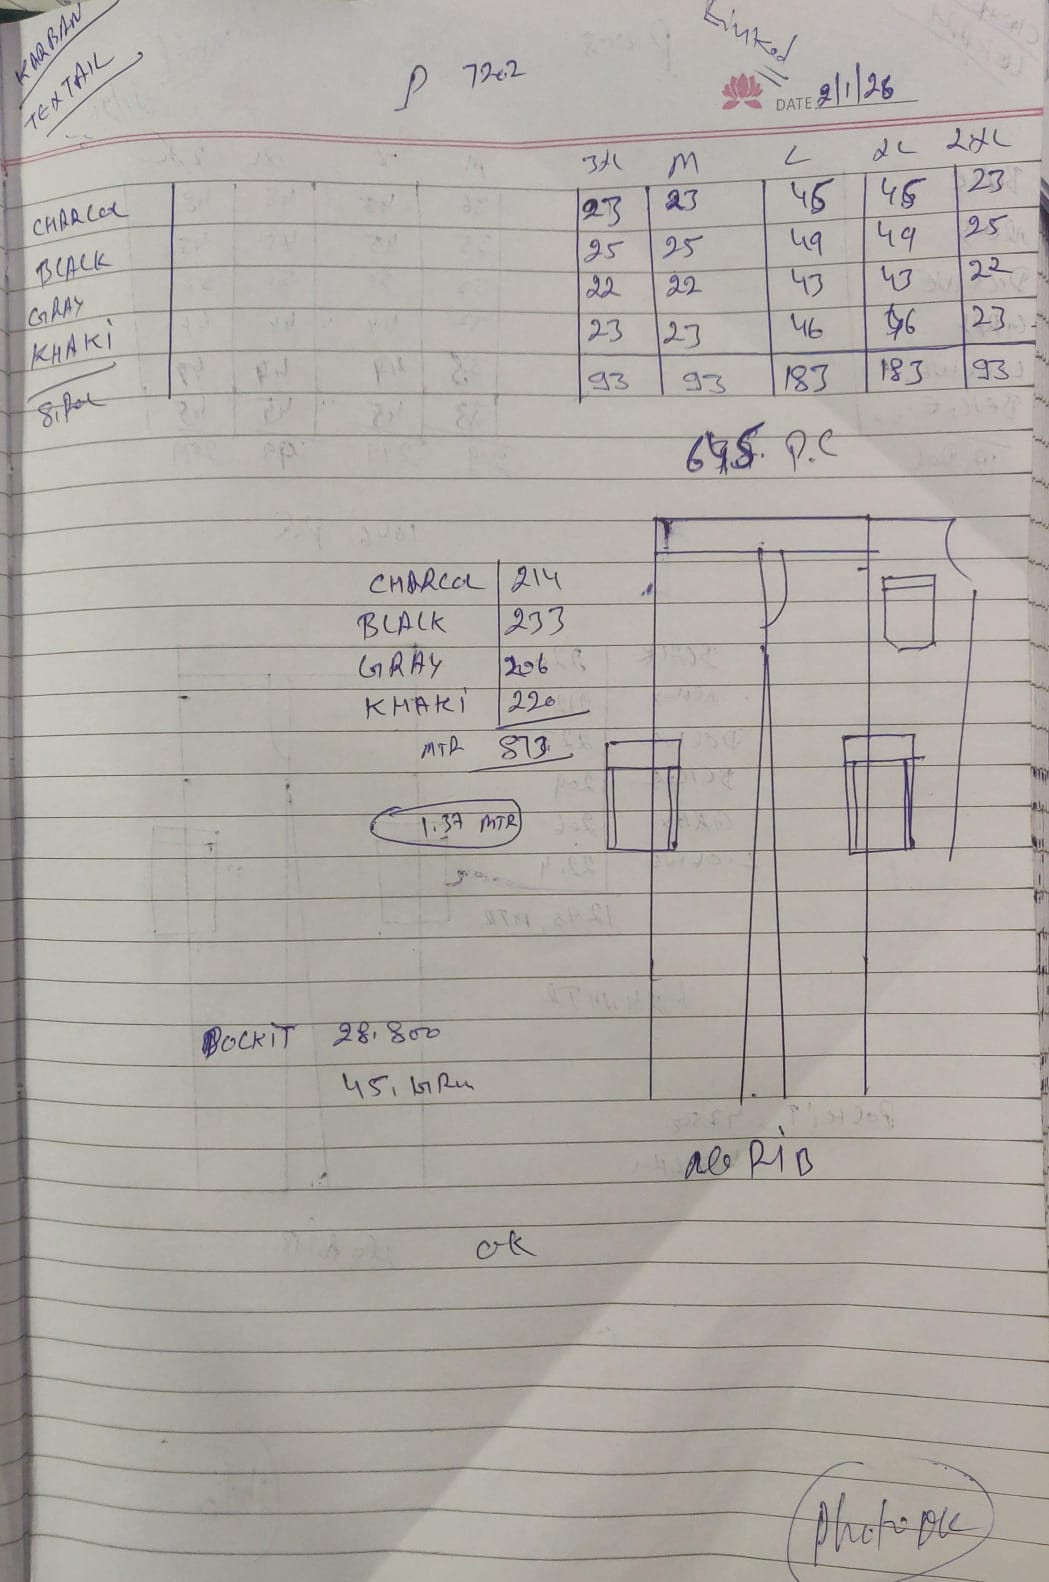 KARBAN
TEXTAIL
P 7202
Linked
DATE 2/1/26
3XL M L XL 2XL
CHARCOL 23 23 45 45 23
BLACK 25 25 49 49 25
GRAY 22 22 43 43 22
KHAKI 23 23 46 46 23
93 93 183 183 93
P.C
CHARCOL 214
BLACK 233
GRAY 206
KHAKI 220
MTR 873
1.37 MTR
POCKIT 28.800
45. GRM
RIB
OK
Photo OK